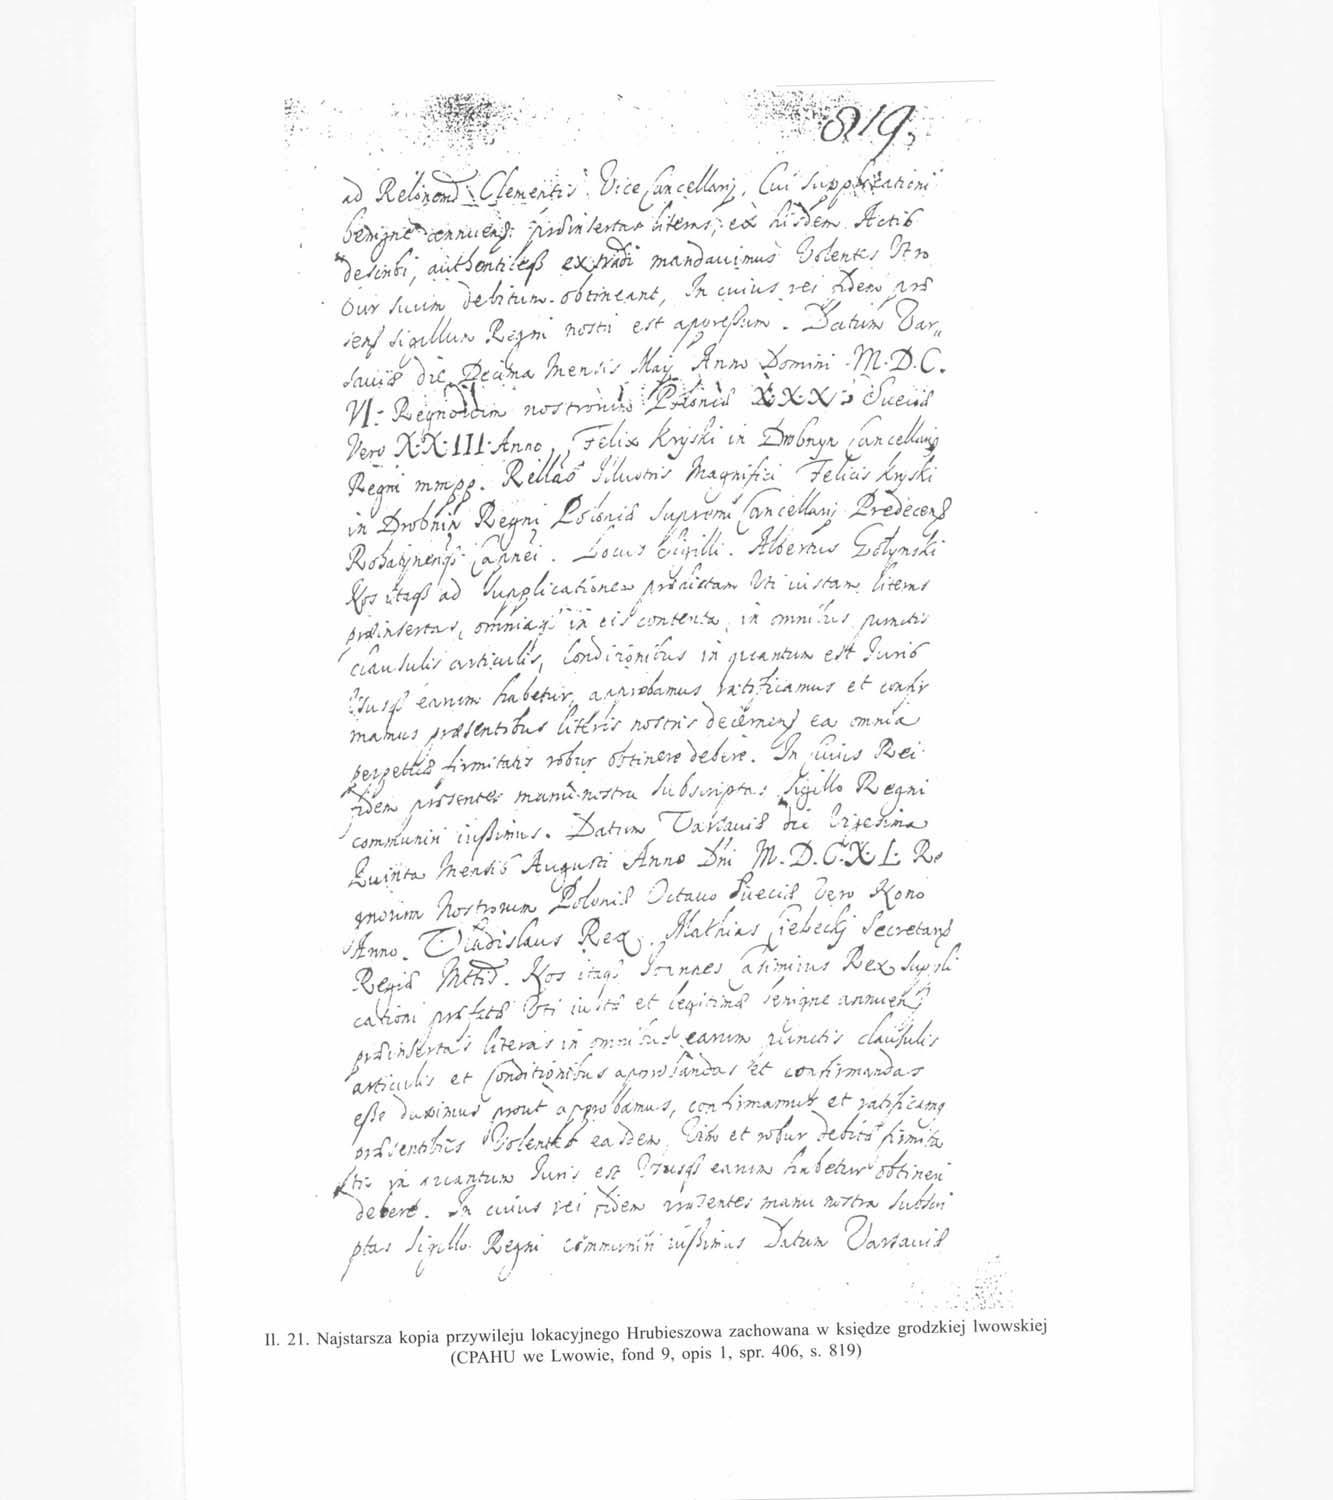 819.
ad Clementis Vice Cancellarij. Cui supplicationi
benigne præinsertas literas, ex hisdem Actis
extradi mandavimus Volentes
suum debitum obtineant, In cuius rei fidem præ
sens sigillum Regni nostri est appressum. Datum Var„
saviæ die Decima Mensis Maij Anno Domini M.D.C.
VI: nostrorum Poloniæ Sueciæ
Vero X:X:III: Anno, Felix Kryski in Drobnyn Cancellarius
Regni mmpp. Illustris Magnifici Felicis Kryski
in Drobnin Regni Poloniæ Supremi Cancellarij
Locus Sigilli. Albertus
Nos itaqȝ ad Supplicationem Uti iustam literas
præinsertas, omniaqȝ in eis contenta, in omnibus punctis
clausulis articulis, Conditionibus in quantum est Iuris
Ususqȝ earum habetur, approbamus ratificamus et confir
mamus præsentibus literis nostris ea omnia
perpetuæ firmitatis robur obtinere debere. In Cuius Rei
fidem præsentes manu nostra Subscriptas Sigillo Regni
communiri iussimus. Datum Varsaviæ die Vigesima
Quinta Mensis Augusti Anno Dni M.D.C.X.L: Re
gnorum Nostrorum Poloniæ Octavo Sueciæ Vero Nono
Anno. Vladislaus Rex. Mathias Secretarius
Regiæ Mttis. Nos itaqȝ Ioannes Casimirus Rex Suppli
cationi Uti iustæ et legitimæ benigne
præinsertas literas in omnibus earum punctis clausulis
articulis et Conditionibus approbandas et confirmandas
esse duximus prout approbamus, confirmamus et ratificamus
præsentibus Volentes easdem Vim et robur debitæ firmita
tis in quantum Iuris est Ususqȝ earum habetur obtineri
debere. In cuius rei fidem præsentes manu nostra Subscri
ptas Sigillo Regni communiri iussimus Datum Varsaviæ
Il. 21. Najstarsza kopia przywileju lokacyjnego Hrubieszowa zachowana w księdze grodzkiej lwowskiej
(CPAHU we Lwowie, fond 9, opis 1, spr. 406, s. 819)